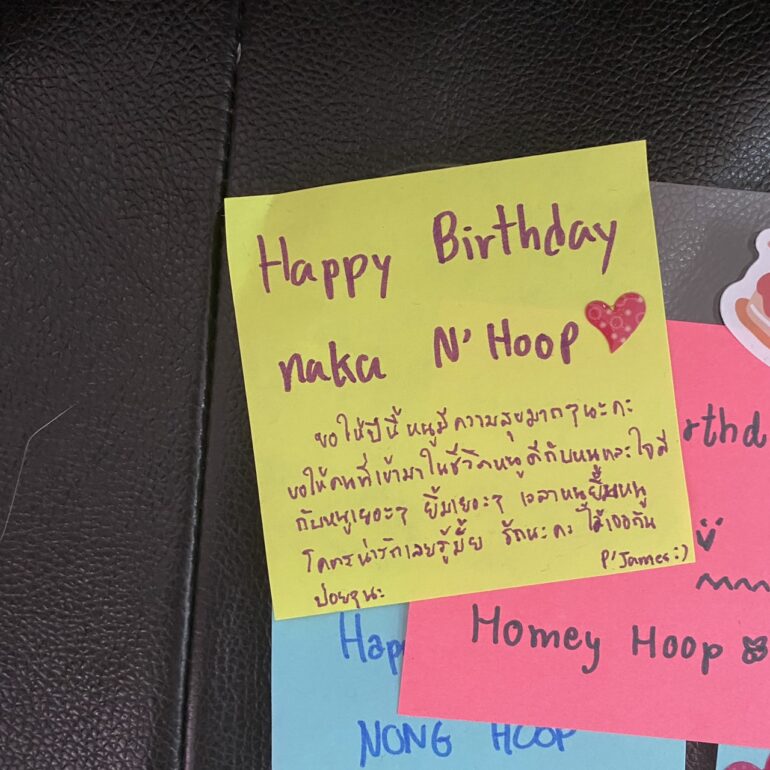 Happy Birthday
naka N' Hoop
ขอให้ปีนี้ หนูมีความสุขมากๆนะคะ
ขอให้คนที่เข้ามาในชีวิตหนูดีกับหนูและใจดี
กับหนูเยอะๆ ยิ้มเยอะๆ เวลาหนูยิ้มหนู
โคตรน่ารักเลยรู้มั้ย รักนะคะ ไว้เจอกัน
บ่อยๆนะ P'James :)
rthd
Homey Hoop
Hap
NONG HOOP